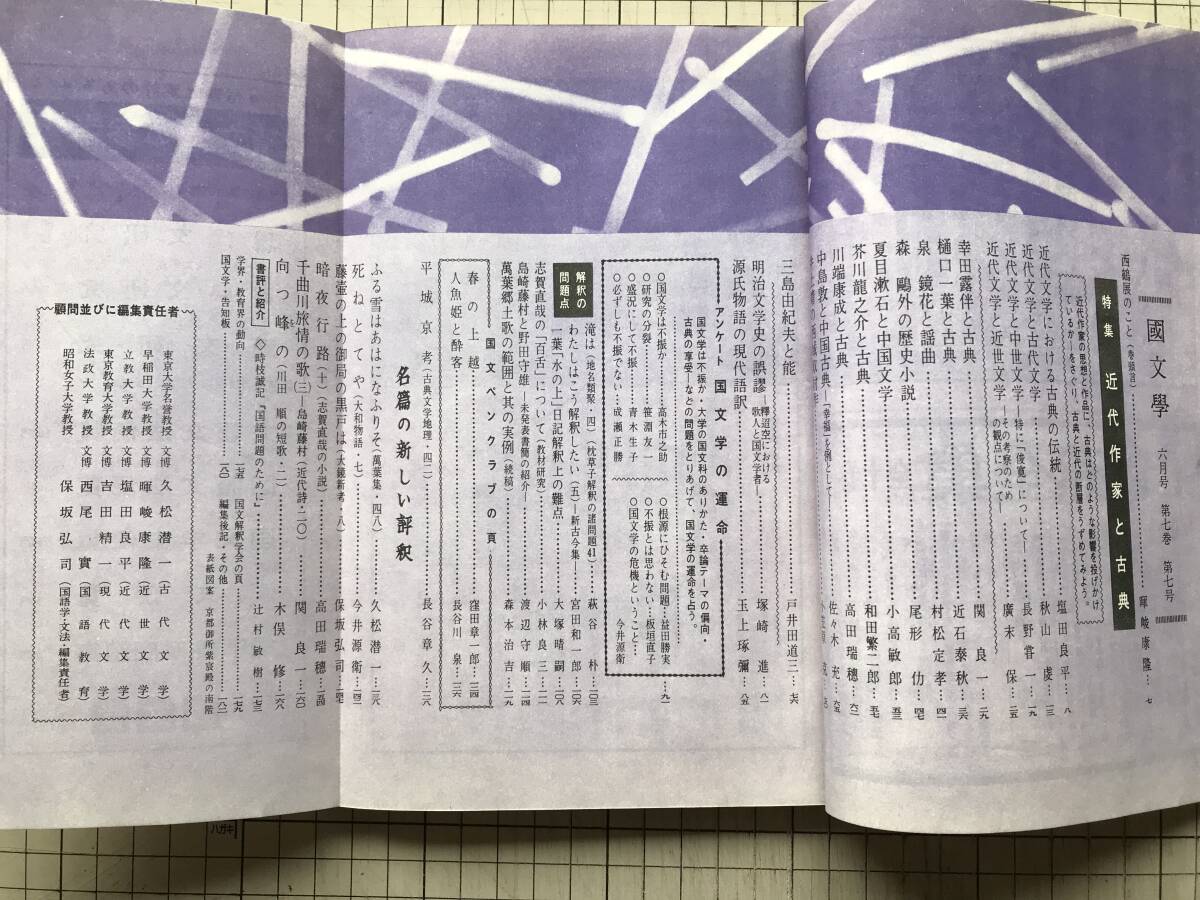 國文學 六月号 第七巻 第七号
西鶴展のこと(巻頭言)……暉峻康隆…七
特集 近代作家と古典
近代作家の思想と作品に、古典はどのような影響を投げかけ
ているか―をさぐり、古典と近代の断層をうずめてみよう。
近代文学における古典の伝統……塩田良平…八
近代文学と古代文学……秋山虔…一三
近代文学と中世文学―特に「俊寛」にて―……長野甞一…一九
近代文学と近世文学―その考察のための観点について―……廣末保…二五
幸田露伴と古典……関良一…二九
樋口一葉と古典……近石泰秋…三六
泉鏡花と謡曲……村松定孝…四一
森鷗外の歴史小説……尾形仂…四七
夏目漱石と中国文学……小高敏郎…五三
芥川龍之介と古典……和田繁二郎…五七
川端康成と古典……高田瑞穂…六二
中島敦と中国古典―「幸福」を例として―……佐々木充…六五
三島由紀夫と能……戸井田道三…七六
明治文学史の誤謬―釋迢空における歌人と国文学者―……塚崎進…八一
源氏物語の現代語訳……玉上琢彌…八五
アンケート 国文学の運命
国文学は不振か・大学の国文科のありかた・卒論テーマの偏向・
古典の享受―などの問題をとりあげて、国文学の運命を占う。
○国文学は不振か……高木市之助
○研究の分裂……笹淵友一
○盛況にして不振……青木生子
○必ずしも不振でない…成瀬正勝
○根源にひそむ問題…益田勝実
○不振とは思わない…板垣直子
○国文学の危機ということ…今井源衛
…九一
解釈の問題点
滝は(地名類聚・四)(枕草子解釈の諸問題41)……萩谷朴…一〇三
わたしはこう解釈したい(五)―新古今集―……宮田和一郎…一〇六
一葉「水の上」日記解釈上の難点……大塚晴嗣…一〇八
志賀直哉の「百舌」について(教材研究)……小林良三…一二一
島崎藤村と野田守雄―未発表書簡の紹介―……渡辺守順…一二四
萬葉郷土歌の範囲と其の実例(続稿)……森本治吉…一二九
国文ペンクラブの頁
春の上越……窪田章一郎…一三四
人魚姫と酔客……長谷川泉…一三六
平城京考(古典文学地理・四二)……長谷章久…一三八
名篇の新しい評釈
ふる雪はあはになふりそ(萬葉集・四八)……久松潜一…一三六
死ねとてや(大和物語 七)……今井源衛…一四二
藤壷の上の御局の黒戸は(大鏡新考・八)……保坂弘司…一四七
暗夜行路(十)(志賀直哉の小説)……高田瑞穂…一五四
千曲川旅情の歌(三)―島崎藤村(近代詩・二〇)……関良一…一六〇
向つ峰の(川田順の短歌・二)……木俣修…一六六
書評と紹介 ◇時枝誠記『国語問題のために』……辻村敏樹…一七三
学界・教育界の動向……一七五
国文学・告知板……一八〇
国文解釈学会の頁……一七九
編集後記・その他……一八二
表紙図案 京都御所紫宸殿の南階
顧問並びに編集責任者
東京大学名誉教授 文博 久松潜一(古代文学)
早稲田大学教授 文博 暉峻康隆(近世文学)
立教大学教授 文博 塩田良平(近代文学)
東京教育大学教授 文博 吉田精一(現代文学)
法政大学教授 文博 西尾實(国語教育)
昭和女子大学教授 保坂弘司(国語学・文法・編集責任者)